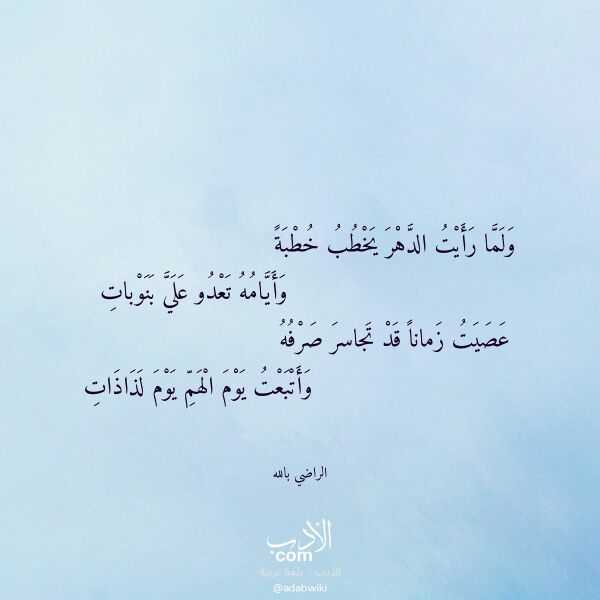 وَلَمَّا رَأَيْتُ الدَّهْرَ يَخْطُبُ خُطْبَةً
وَأَيَّامُهُ تَعْدُو عَلَيَّ بَنَوْباتِ
عَصَيَتُ زَماناً قَدْ تَجاسرَ صَرْفُهُ
وَأَتْبَعْتُ يَوْمَ الْهَمِّ يَوْمَ لَذَاذَاتِ
الراضي بالله
الأدب
com
الأدب .. بلغة عربية
@adabwiki